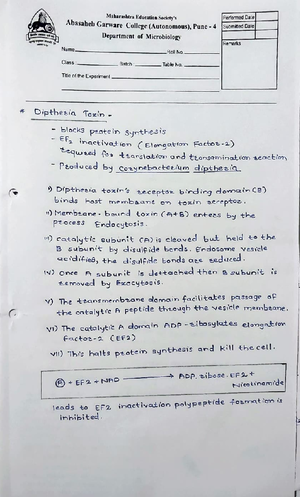 Maharashtra Education Society's
Abasaheb Garware College (Autonomous), Pune - 4
Department of Microbiology
Name Roll No.
Class Batch Table No.
Title of the Experiment
Performed Date
Submitted Date
Remarks
* Diptheria Toxin -
- blocks protein synthesis
- EF2 inactivation (Elongation Factor-2)
required for translation and transamination reaction
- Produced by Corynebacterium diptheria
i) Diptheria toxin's receptor binding domain (B)
binds host membrane on toxin receptor.
ii) Membrane-bound toxin (A+B) enters by the
process Endocytosis.
iii) Catalytic subunit (A) is cleaved but held to the
B subunit by disulfide bonds. Endosome vesicle
acidified, the disulfide bonds are reduced.
iv) Once A subunit is dettached then B subunit is
removed by Exocytosis.
v) The transmembrane domain facilitates passage of
the catalytic A peptide through the vesicle membrane.
vi) The catalytic A domain ADP-ribosylates elongation
Factor-2 (EF2)
vii) This halts protein synthesis and kill the cell.
A + EF2 + NAD → ADP. ribose. EF2 +
Nicotinamide
leads to EF2 inactivation polypeptide formation is
inhibited.